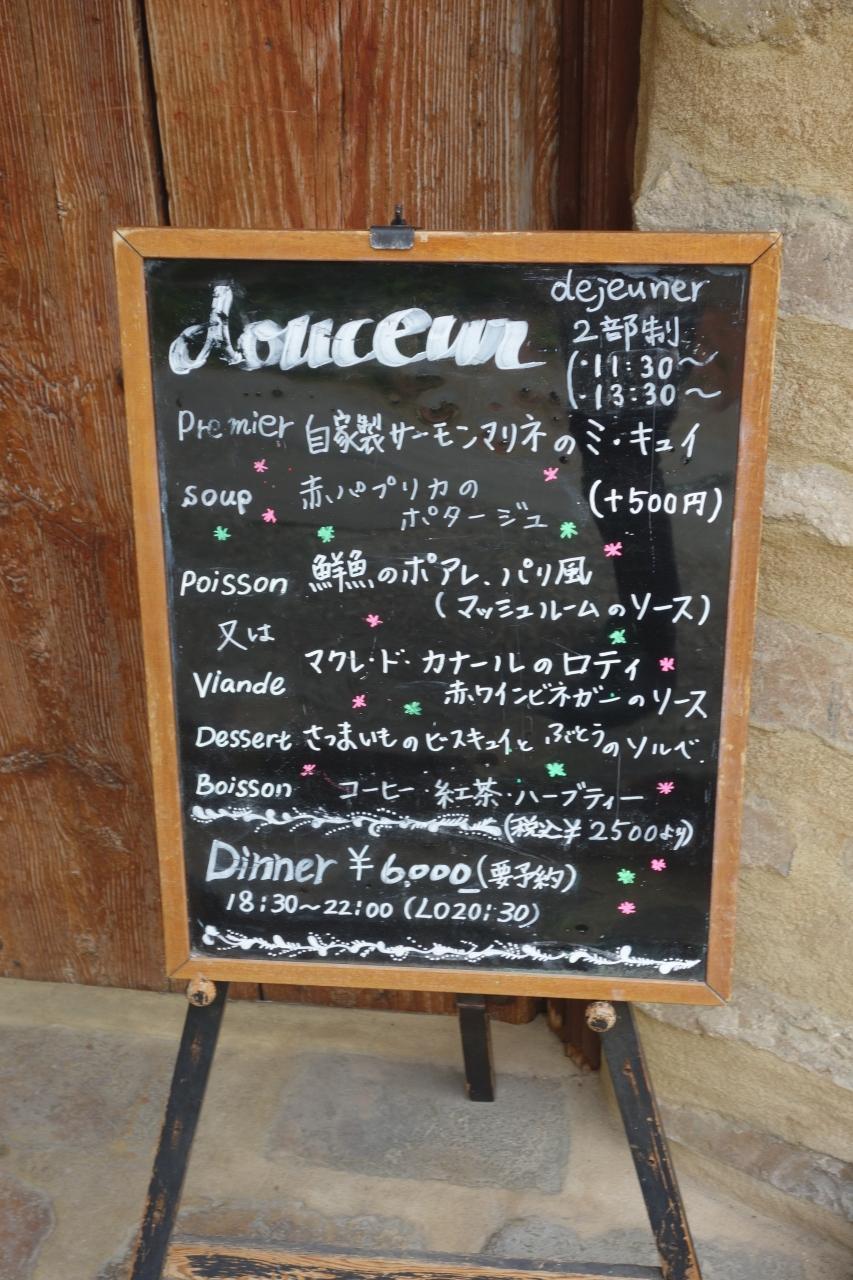 douceur
dejeuner
2部制
(・11:30〜
(・13:30〜
Premier 自家製サーモンマリネのミ・キュイ
soup 赤パプリカの
ポタージュ (+500円)
Poisson 鮮魚のポアレ、パリ風
(マッシュルームのソース)
又は
Viande マグレ・ド・カナールのロティ
赤ワインビネガーのソース
Dessert さつまいものビースキュイとぶどうのソルベ.
Boisson コーヒー・紅茶・ハーブティー
(税込¥2500より)
Dinner ¥6,000(要予約)
18:30〜22:00 (LO20:30)